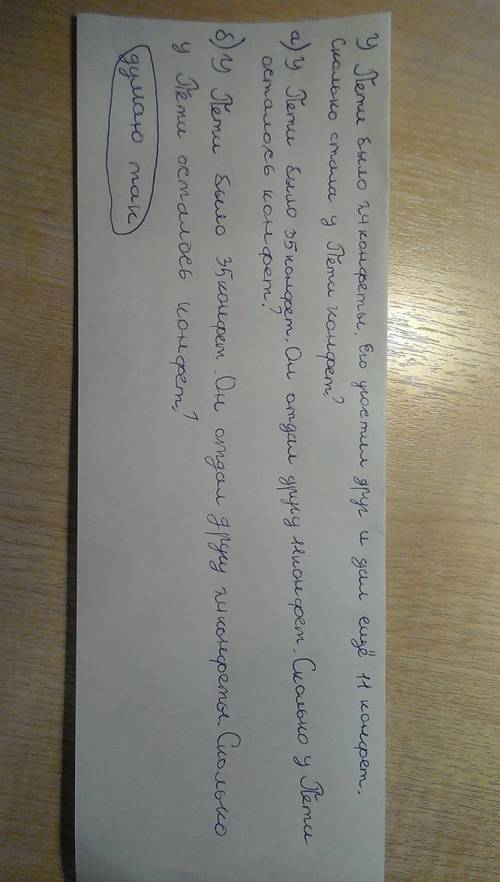 У Пети было 24 конфеты. Его угостил друг и дал ещё 11 конфет.
Сколько стало у Пети конфет?
а) У Пети было 35 конфет. Он отдал другу 11 конфет. Сколько у Пети
осталось конфет?
б) У Пети было 35 конфет. Он отдал другу 24 конфеты. Сколько
у Пети осталось конфет?
думаю так